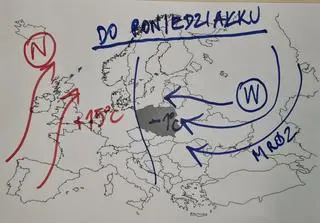 DO PONIEDZIAŁKU
N
+15°C
-1°C
W
MRÓZ